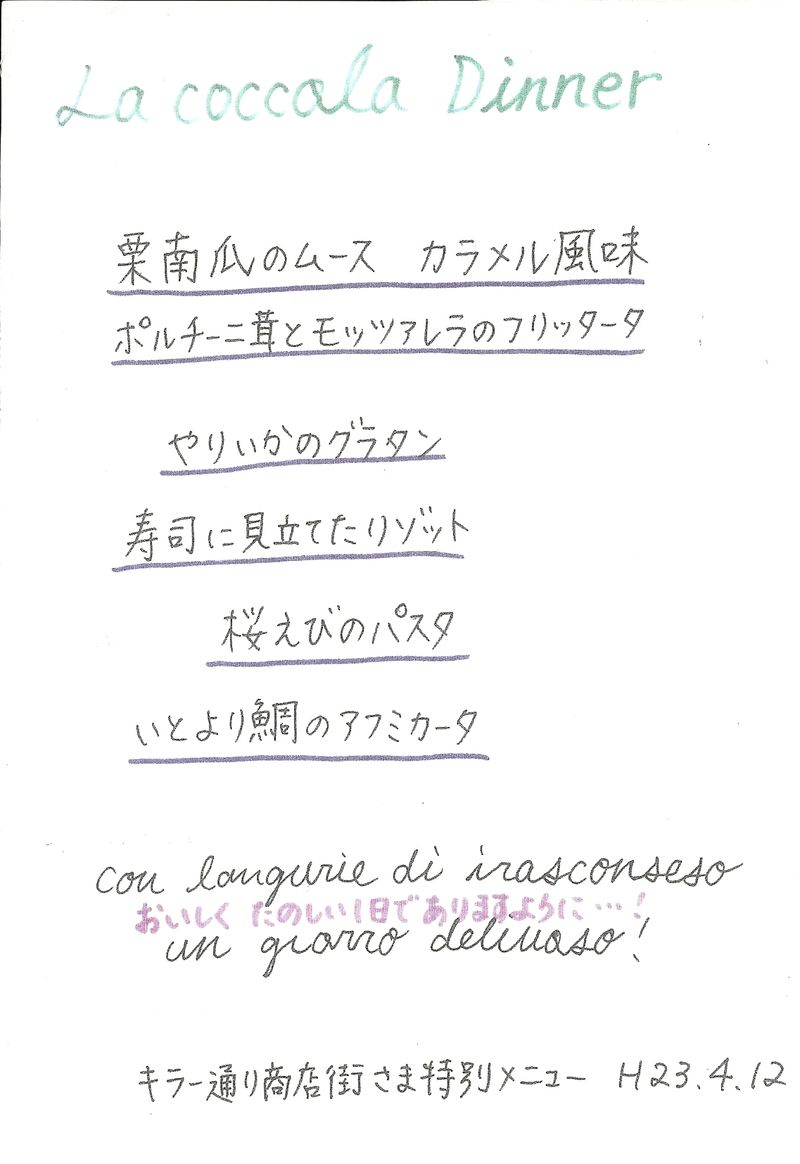 La coccola Dinner
栗南瓜のムース カラメル風味
ポルチーニ茸とモッツァレラのフリッタータ
やりいかのグラタン
寿司に見立てたリゾット
桜えびのパスタ
いとより鯛のアフミカータ
con langurie di irasconseso
おいしく たのしい1日でありますように…!
un giorro delivaso!
キラー通り商店街さま特別メニュー H23.4.12